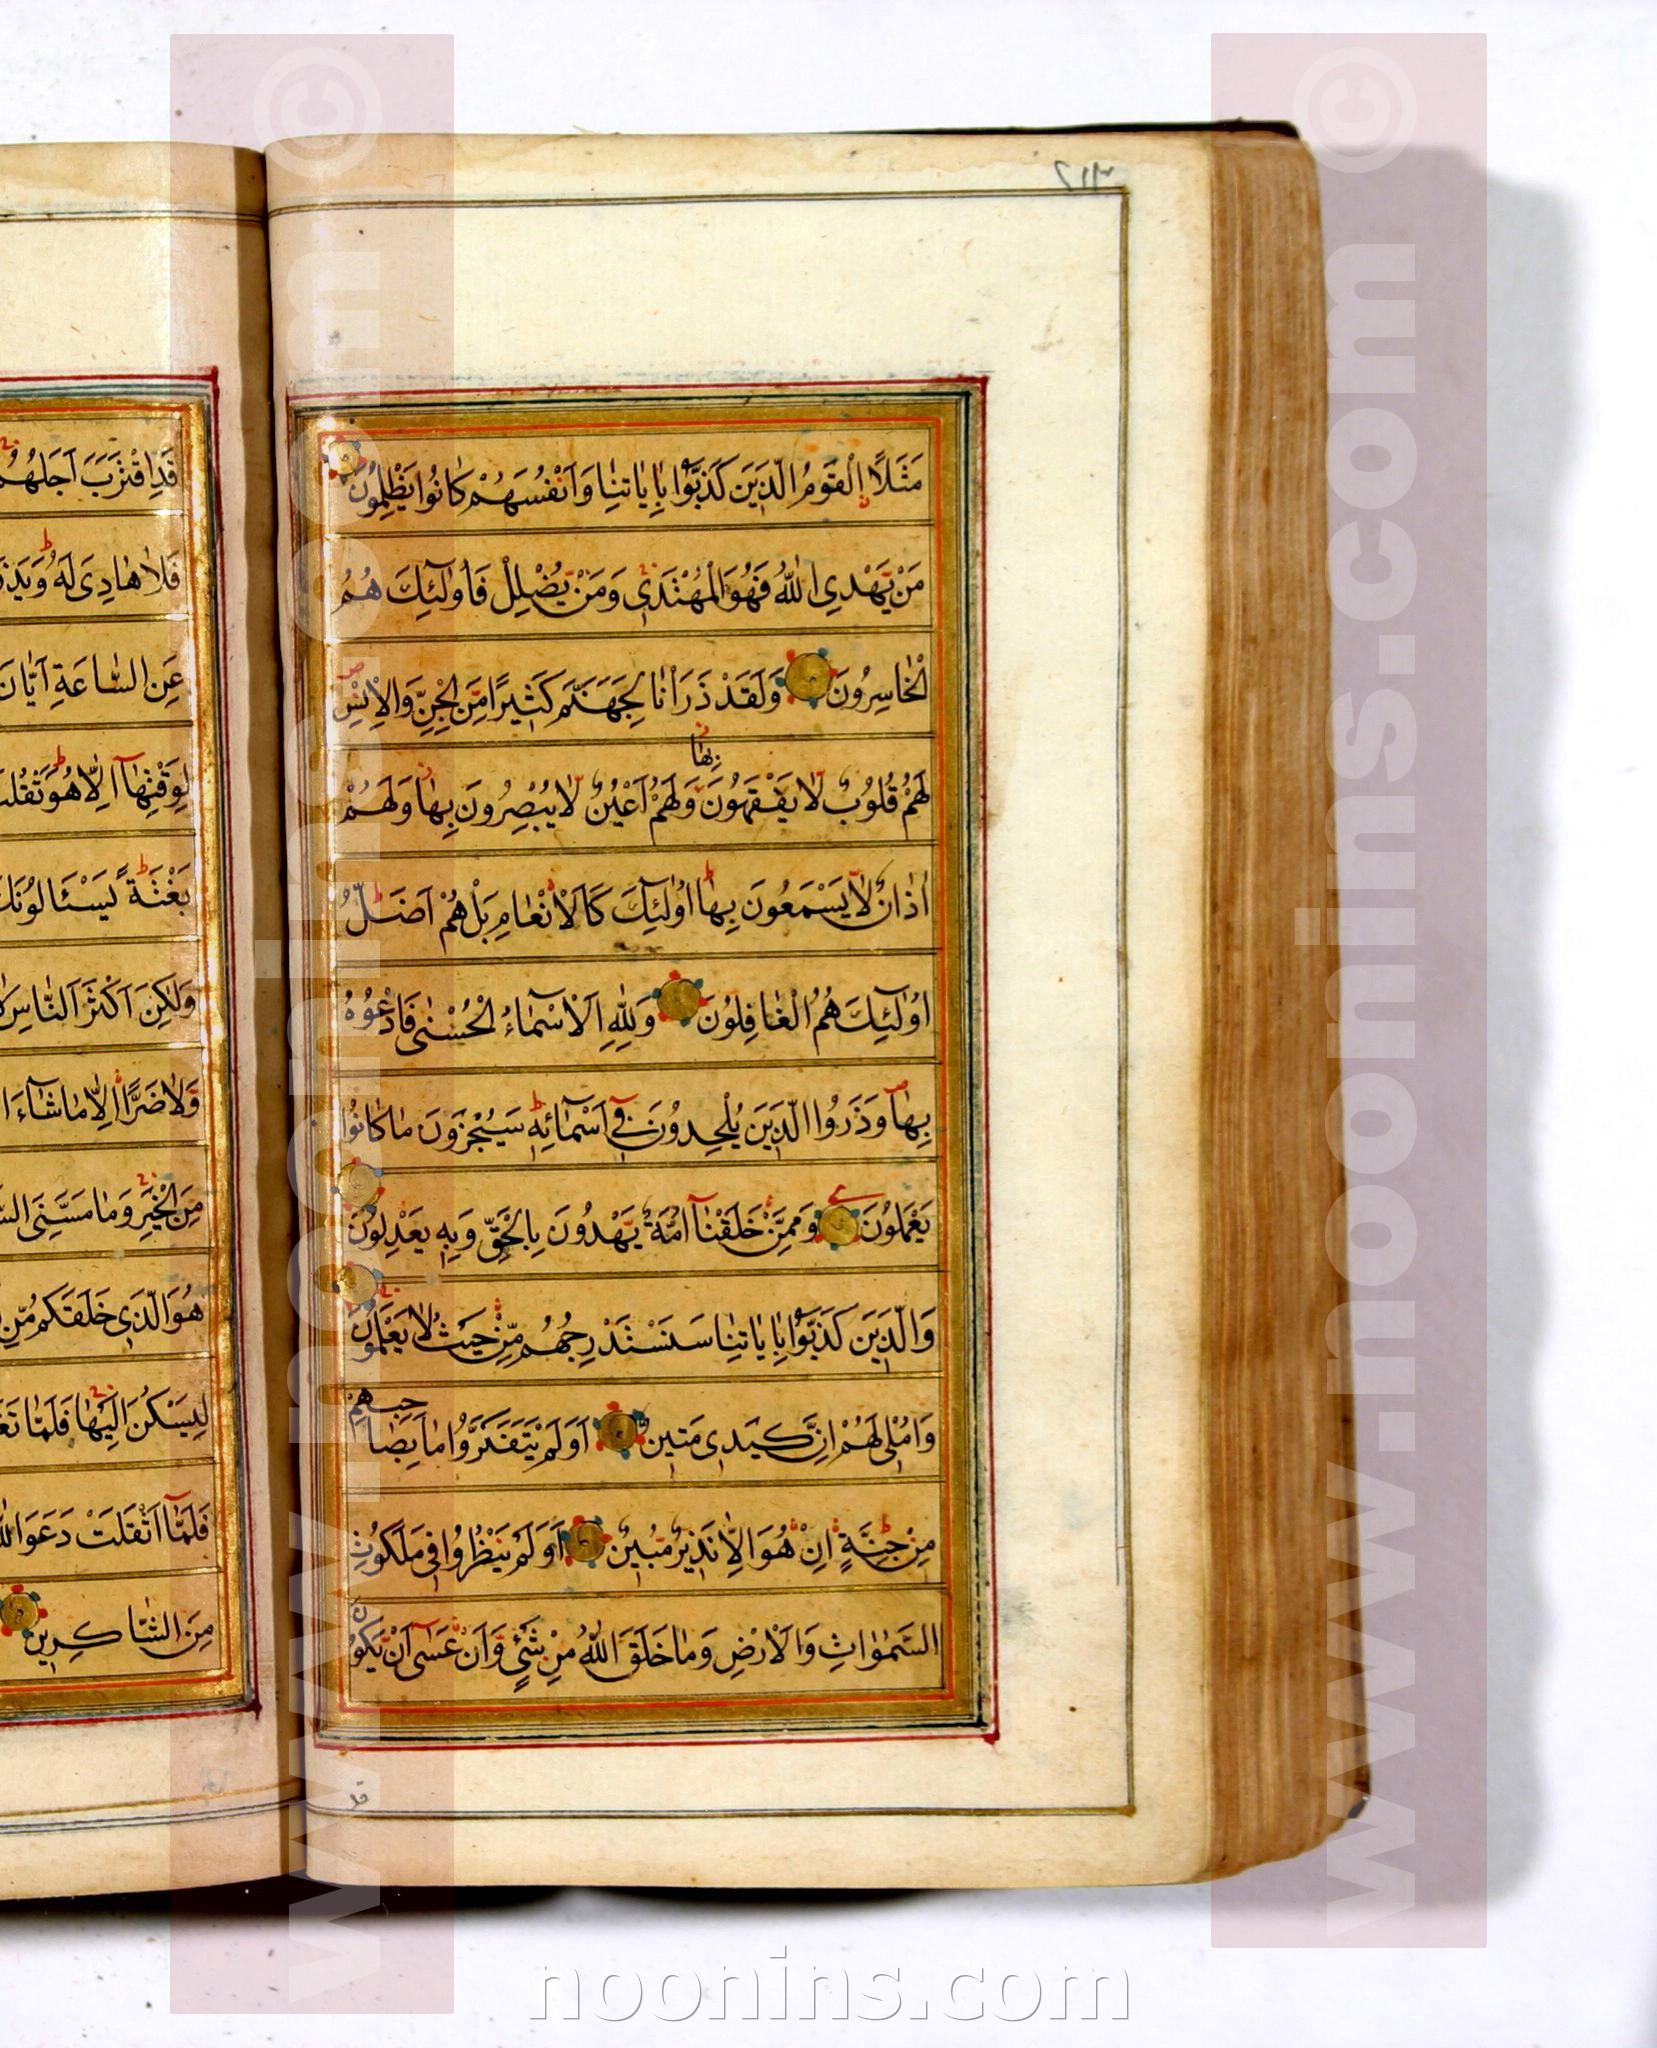 مَثَلًا ۨالْقَوْمُ الَّذِينَ كَذَّبُوا بِاٰيَاتِنَا وَاَنْفُسَهُمْ كَانُوا يَظْلِمُونَ
مَنْ يَهْدِى اللّٰهُ فَهُوَ الْمُهْتَدِى وَمَنْ يُضْلِلْ فَاُولٰٓئِكَ هُمُ
الْخَاسِرُونَ وَلَقَدْ ذَرَاْنَا لِجَهَنَّمَ كَثِيرًا مِنَ الْجِنِّ وَالْاِنْسِ
لَهُمْ قُلُوبٌ لَا يَفْقَهُونَ بِهَا وَلَهُمْ اَعْيُنٌ لَا يُبْصِرُونَ بِهَا وَلَهُمْ
اٰذَانٌ لَا يَسْمَعُونَ بِهَا اُولٰٓئِكَ كَالْاَنْعَامِ بَلْ هُمْ اَضَلُّ
اُولٰٓئِكَ هُمُ الْغَافِلُونَ وَلِلّٰهِ الْاَسْمَآءُ الْحُسْنٰى فَادْعُوهُ
بِهَا وَذَرُوا الَّذِينَ يُلْحِدُونَ فِىٓ اَسْمَآئِهِ سَيُجْزَوْنَ مَا كَانُوا
يَعْمَلُونَ وَمِمَّنْ خَلَقْنَآ اُمَّةٌ يَهْدُونَ بِالْحَقِّ وَبِهِ يَعْدِلُونَ
وَالَّذِينَ كَذَّبُوا بِاٰيَاتِنَا سَنَسْتَدْرِجُهُمْ مِنْ حَيْثُ لَا يَعْلَمُونَ
وَاُمْلِى لَهُمْ اِنَّ كَيْدِى مَتِينٌ اَوَلَمْ يَتَفَكَّرُوا مَا بِصَاحِبِهِمْ
مِنْ جِنَّةٍ اِنْ هُوَ اِلَّا نَذِيرٌ مُبِينٌ اَوَلَمْ يَنْظُرُوا فِى مَلَكُوتِ
السَّمٰوَاتِ وَالْاَرْضِ وَمَا خَلَقَ اللّٰهُ مِنْ شَىْءٍ وَاَنْ عَسٰٓى اَنْ يَكُونَ
قد
قَدِ اقْتَرَبَ اَجَلُهُمْ
فَلَا هَادِىَ لَهُ وَيَذَ
عَنِ السَّاعَةِ اَيَّانَ
لِوَقْتِهَآ اِلَّا هُوَ ثَقُلَتْ
بَغْتَةً يَسْئَالُونَكَ
وَلٰكِنَّ اَكْثَرَ النَّاسِ
وَلَا ضَرًّا اِلَّا مَا شَآءَ
مِنَ الْخَيْرِ وَمَا مَسَّنِىَ
هُوَ الَّذِى خَلَقَكُمْ مِنْ
لِيَسْكُنَ اِلَيْهَا فَلَمَّا
فَلَمَّآ اَثْقَلَتْ دَعَوَا
مِنَ الشَّاكِرِينَ
www.noonins.com ©
www.noonins.com ©
noonins.com